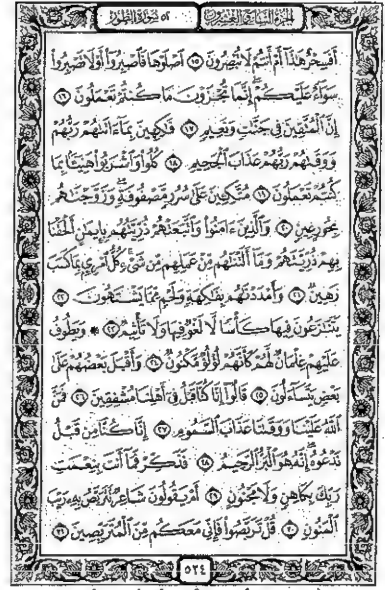 الجزء السابع والعشرون
٥٢ سورة الطور
أَفَسِحْرٌ هَٰذَا أَمْ أَنتُمْ لَا تُبْصِرُونَ ١٥ اصْلَوْهَا فَاصْبِرُوا أَوْ لَا تَصْبِرُوا
سَوَاءٌ عَلَيْكُمْ إِنَّمَا تُجْزَوْنَ مَا كُنتُمْ تَعْمَلُونَ ١٦
إِنَّ الْمُتَّقِينَ فِي جَنَّاتٍ وَنَعِيمٍ ١٧ فَاكِهِينَ بِمَا آتَاهُمْ رَبُّهُمْ
وَوَقَاهُمْ رَبُّهُمْ عَذَابَ الْجَحِيمِ ١٨ كُلُوا وَاشْرَبُوا هَنِيئًا بِمَا
كُنتُمْ تَعْمَلُونَ ١٩ مُتَّكِئِينَ عَلَىٰ سُرُرٍ مَّصْفُوفَةٍ وَزَوَّجْنَاهُم
بِحُورٍ عِينٍ ٢٠ وَالَّذِينَ آمَنُوا وَاتَّبَعَتْهُمْ ذُرِّيَّتُهُم بِإِيمَانٍ أَلْحَقْنَا
بِهِمْ ذُرِّيَّتَهُمْ وَمَا أَلَتْنَاهُم مِّنْ عَمَلِهِم مِّن شَيْءٍ كُلُّ امْرِئٍ بِمَا كَسَبَ
رَهِينٌ ٢١ وَأَمْدَدْنَاهُم بِفَاكِهَةٍ وَلَحْمٍ مِّمَّا يَشْتَهُونَ ٢٢
يَتَنَازَعُونَ فِيهَا كَأْسًا لَّا لَغْوٌ فِيهَا وَلَا تَأْثِيمٌ ٢٣ ۞ وَيَطُوفُ
عَلَيْهِمْ غِلْمَانٌ لَّهُمْ كَأَنَّهُمْ لُؤْلُؤٌ مَّكْنُونٌ ٢٤ وَأَقْبَلَ بَعْضُهُمْ عَلَىٰ
بَعْضٍ يَتَسَاءَلُونَ ٢٥ قَالُوا إِنَّا كُنَّا قَبْلُ فِي أَهْلِنَا مُشْفِقِينَ ٢٦ فَمَنَّ
اللَّهُ عَلَيْنَا وَوَقَانَا عَذَابَ السَّمُومِ ٢٧ إِنَّا كُنَّا مِن قَبْلُ
نَدْعُوهُ إِنَّهُ هُوَ الْبَرُّ الرَّحِيمُ ٢٨ فَذَكِّرْ فَمَا أَنتَ بِنِعْمَتِ
رَبِّكَ بِكَاهِنٍ وَلَا مَجْنُونٍ ٢٩ أَمْ يَقُولُونَ شَاعِرٌ نَّتَرَبَّصُ بِهِ رَيْبَ
الْمَنُونِ ٣٠ قُلْ تَرَبَّصُوا فَإِنِّي مَعَكُم مِّنَ الْمُتَرَبِّصِينَ ٣١
٥٢٤